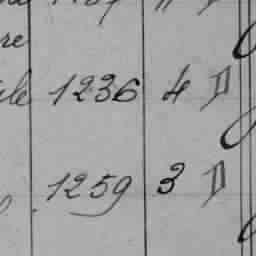 re
ile 1236 4 D
1259 3 D